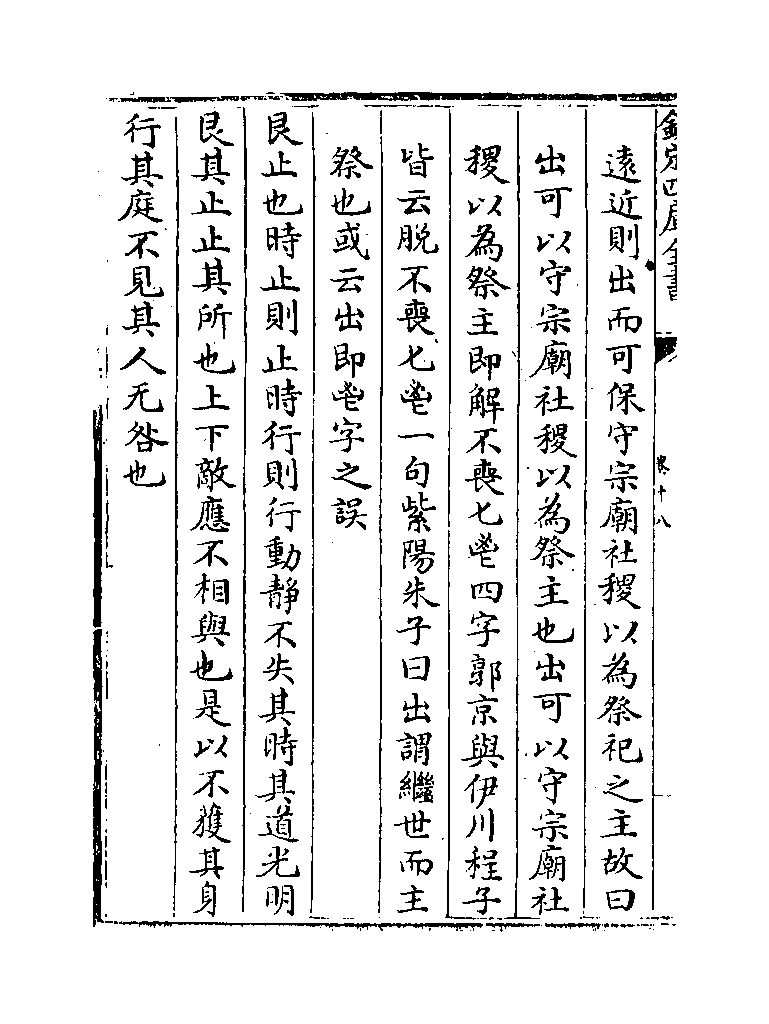 欽定四庫全書
卷十八
遠近則出而可保守宗廟社稷以為祭祀之主故曰
出可以守宗廟社稷以為祭主也出可以守宗廟社
稷以為祭主即解不喪匕鬯四字郭京與伊川程子
皆云脱不喪匕鬯一句紫陽朱子曰出謂繼世而主
祭也或云出即鬯字之誤
艮止也時止則止時行則行動靜不失其時其道光明
艮其止止其所也上下敵應不相與也是以不獲其身
行其庭不見其人无咎也